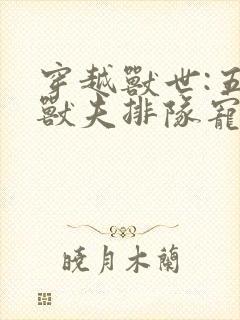 穿越獸世:五
獸夫排隊寵
曉月木蘭